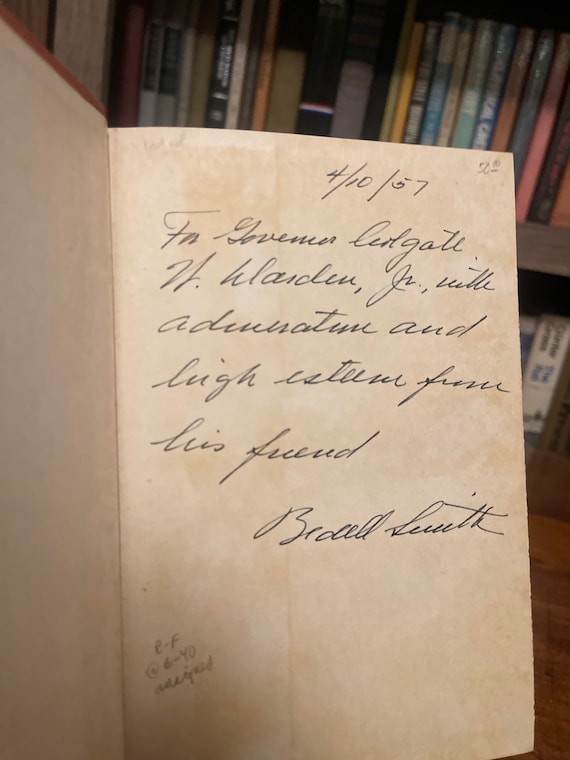 4/10/57
For Governor Colgate
W. Darden, Jr., with
admiration and
high esteem from
his friend
Bedell Smith
E-F
@ 6-40
unsigned